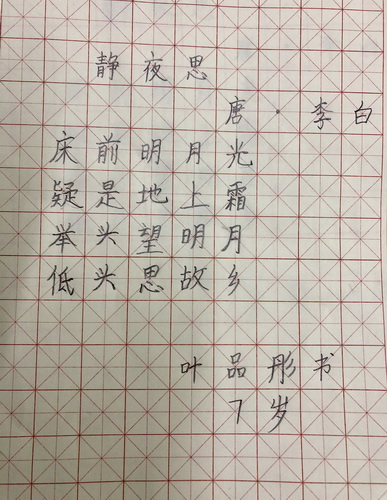 静夜思
唐·李白
床前明月光
疑是地上霜
举头望明月
低头思故乡
叶品彤书
7岁